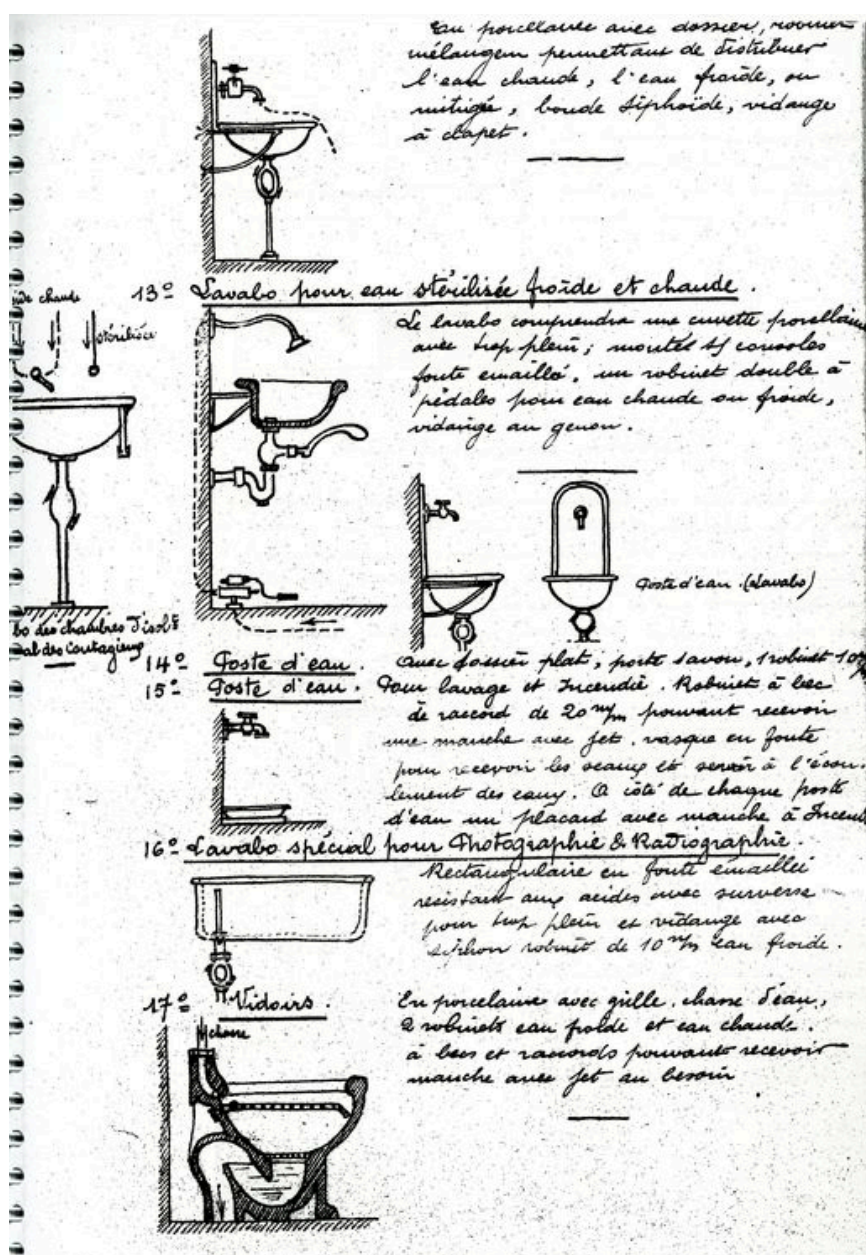 En porcelaine avec dossier, robinet
mélangeur permettant de distribuer
l'eau chaude, l'eau froide, ou
mitigée, bonde siphoïde, vidange
à clapet.
13º Lavabo pour eau stérilisée froide et chaude.
chaude
stérilisée
Le lavabo comprendra une cuvette porcelaine
avec trop plein; montée s/ consoles
fonte émaillée, un robinet double à
pédales pour eau chaude ou froide,
vidange au genou.
Poste d'eau. (Lavabo)
bo des chambres d'isol.t
al des Contagieux
14º Poste d'eau. Avec dossier plat, porte savon, 1 robinet 10 m/m
15º Poste d'eau. Pour lavage et Incendie. Robinet à bec
de raccord de 20 m/m pouvant recevoir
une manche avec jet. vasque en fonte
pour recevoir les seaux et servir à l'écou-
lement des eaux. A côté de chaque poste
d'eau un placard avec manche à Incend
16º Lavabo spécial pour Photographie & Radiographie.
Rectangulaire en fonte émaillée
résistant aux acides avec surverse
pour trop plein et vidange avec
siphon robinet de 10 m/m eau froide.
17º Vidoirs.
chasse
En porcelaine avec grille, chasse d'eau,
2 robinets eau froide et eau chaude.
à becs et raccords pouvant recevoir
manche avec jet au besoin